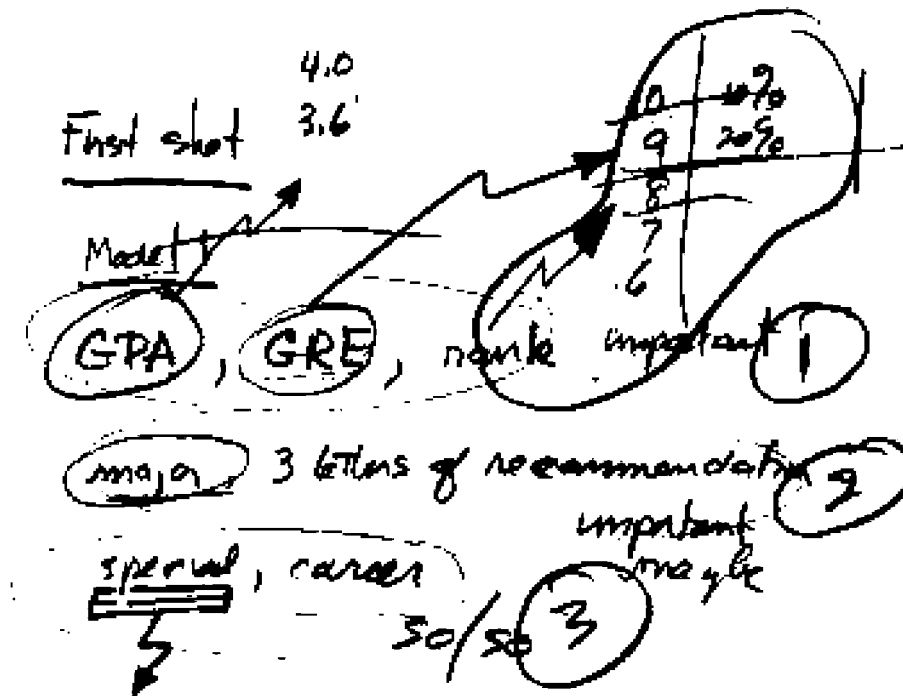 4.0
First shot 3.6
10 10%
9 20%
8
7
6
Model 1
GPA, GRE, rank important 1
major 3 letters of recommendation 2
important
maybe
special, career
50/50 3